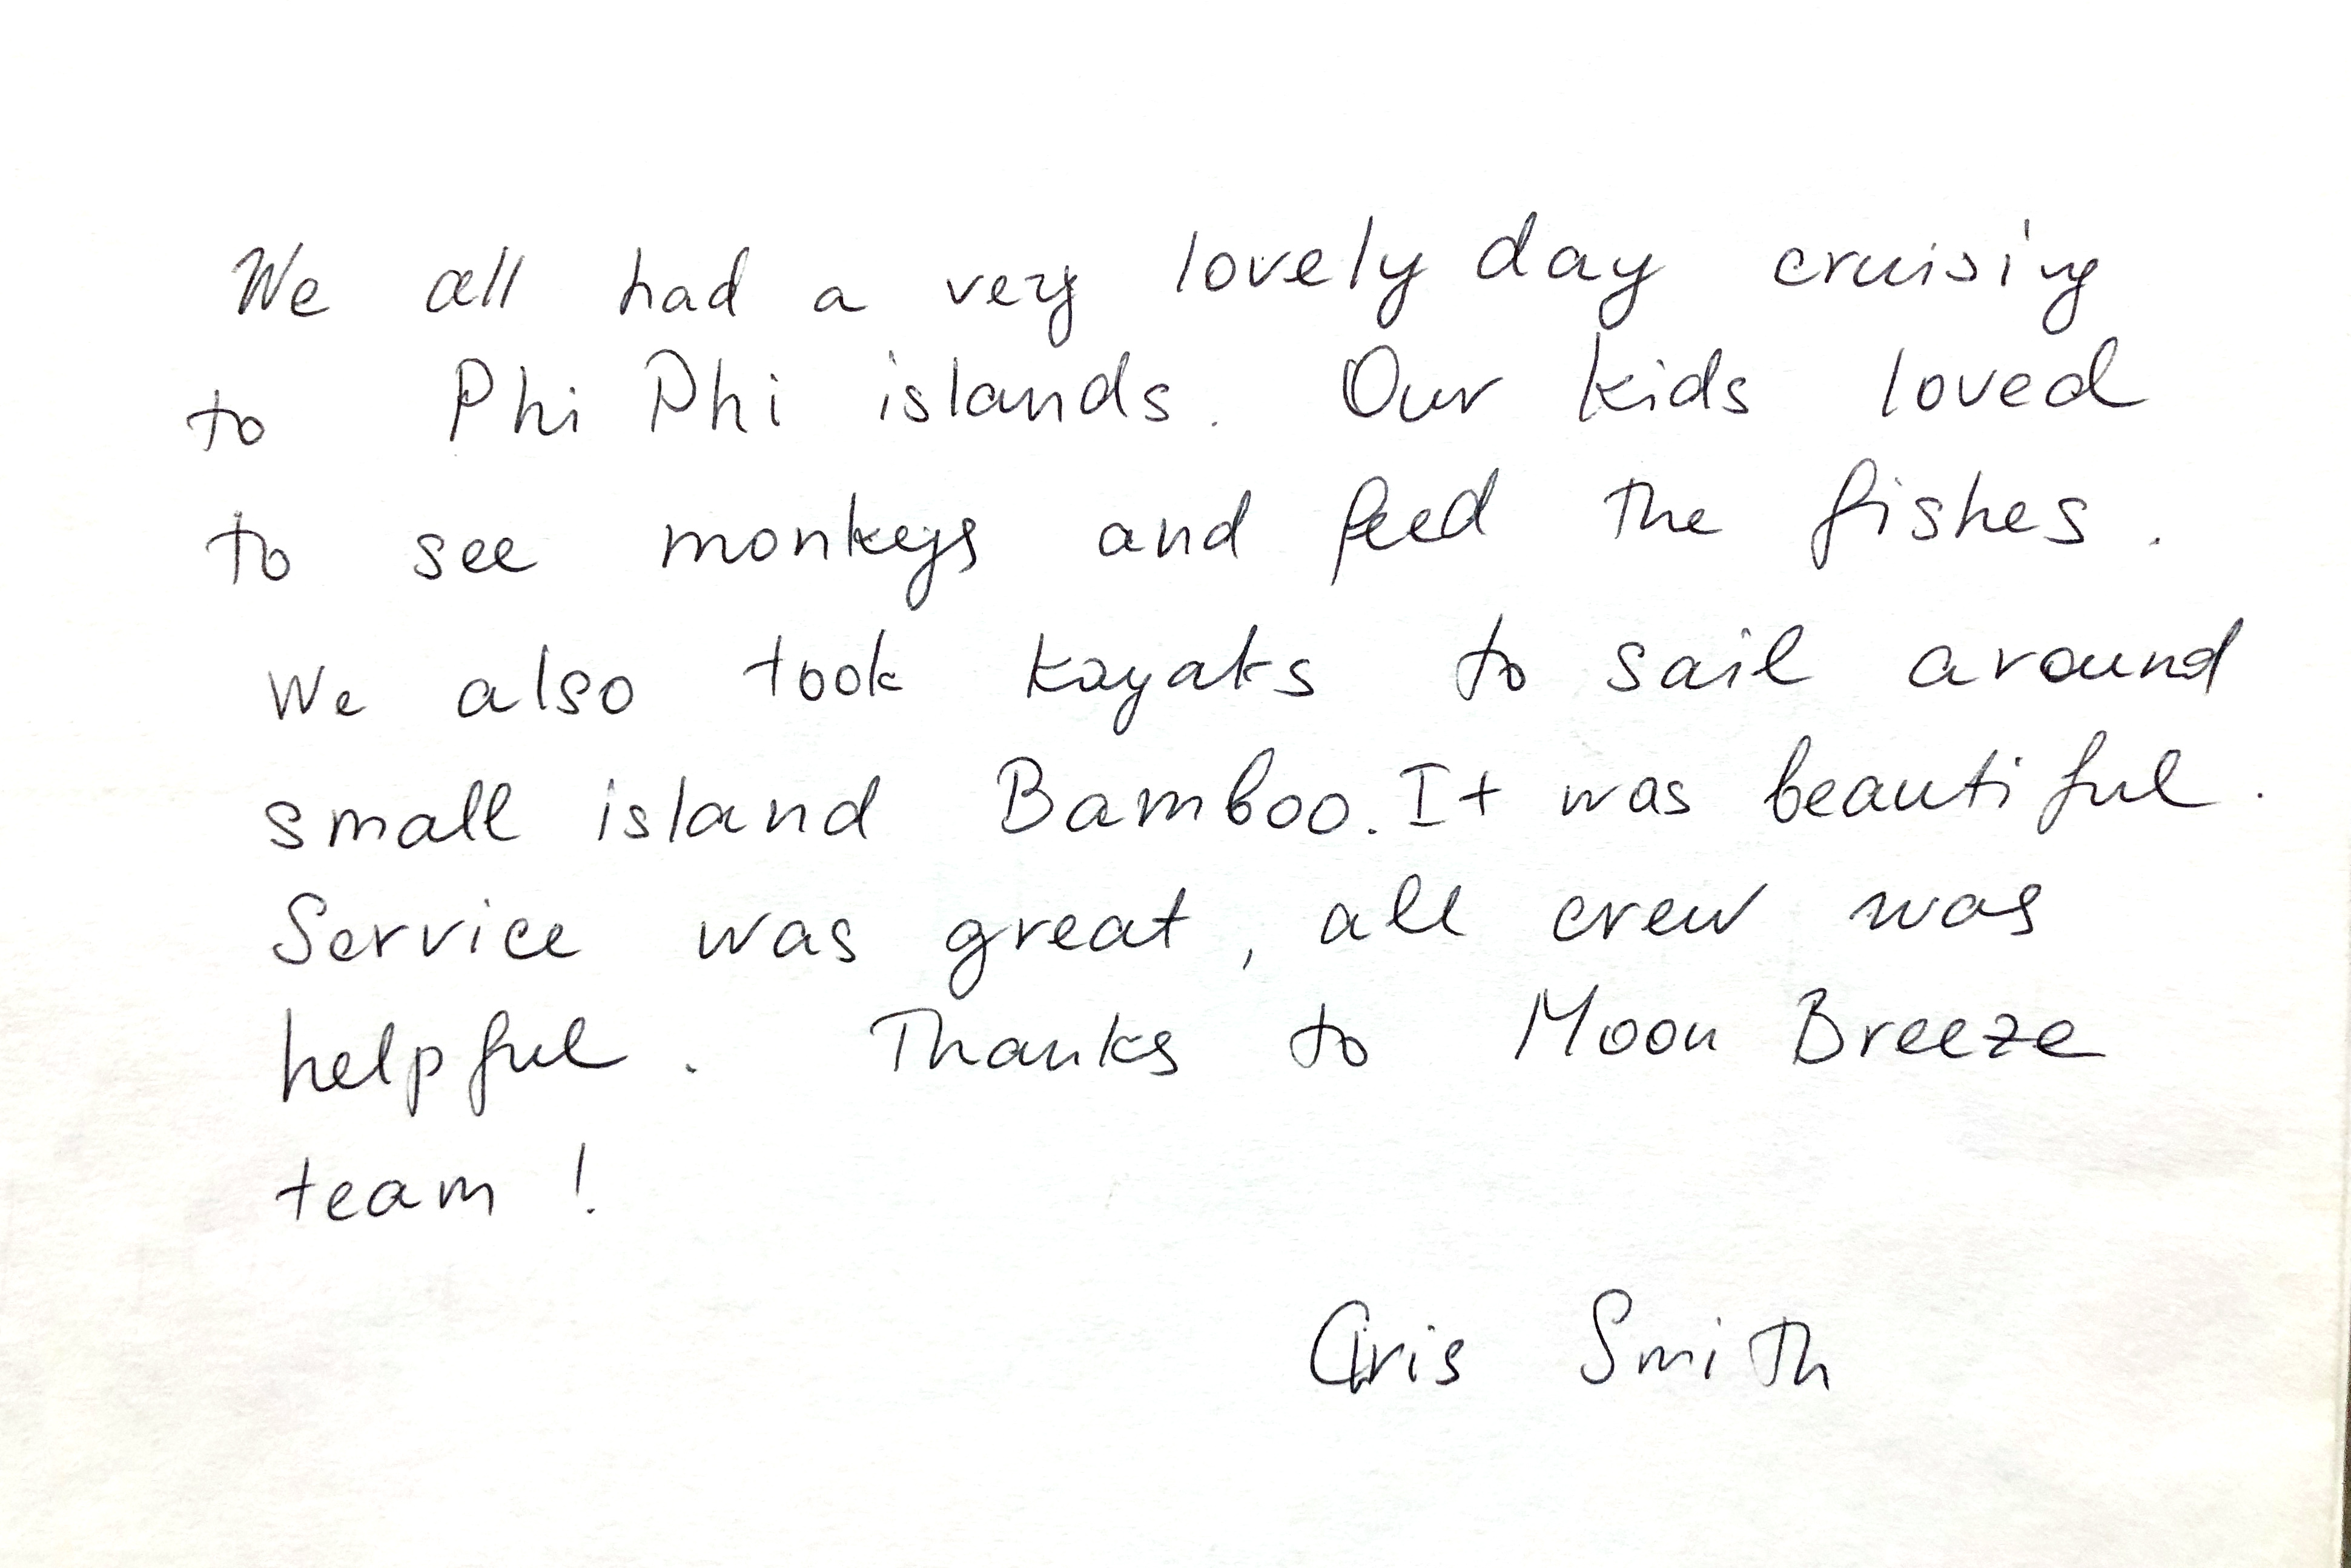 We all had a very lovely day cruising
to Phi Phi islands. Our kids loved
to see monkeys and feed the fishes.
We also took kayaks to sail around
small island Bamboo. It was beautiful.
Service was great, all crew was
helpful. Thanks to Moon Breeze
team!
Cris Smith